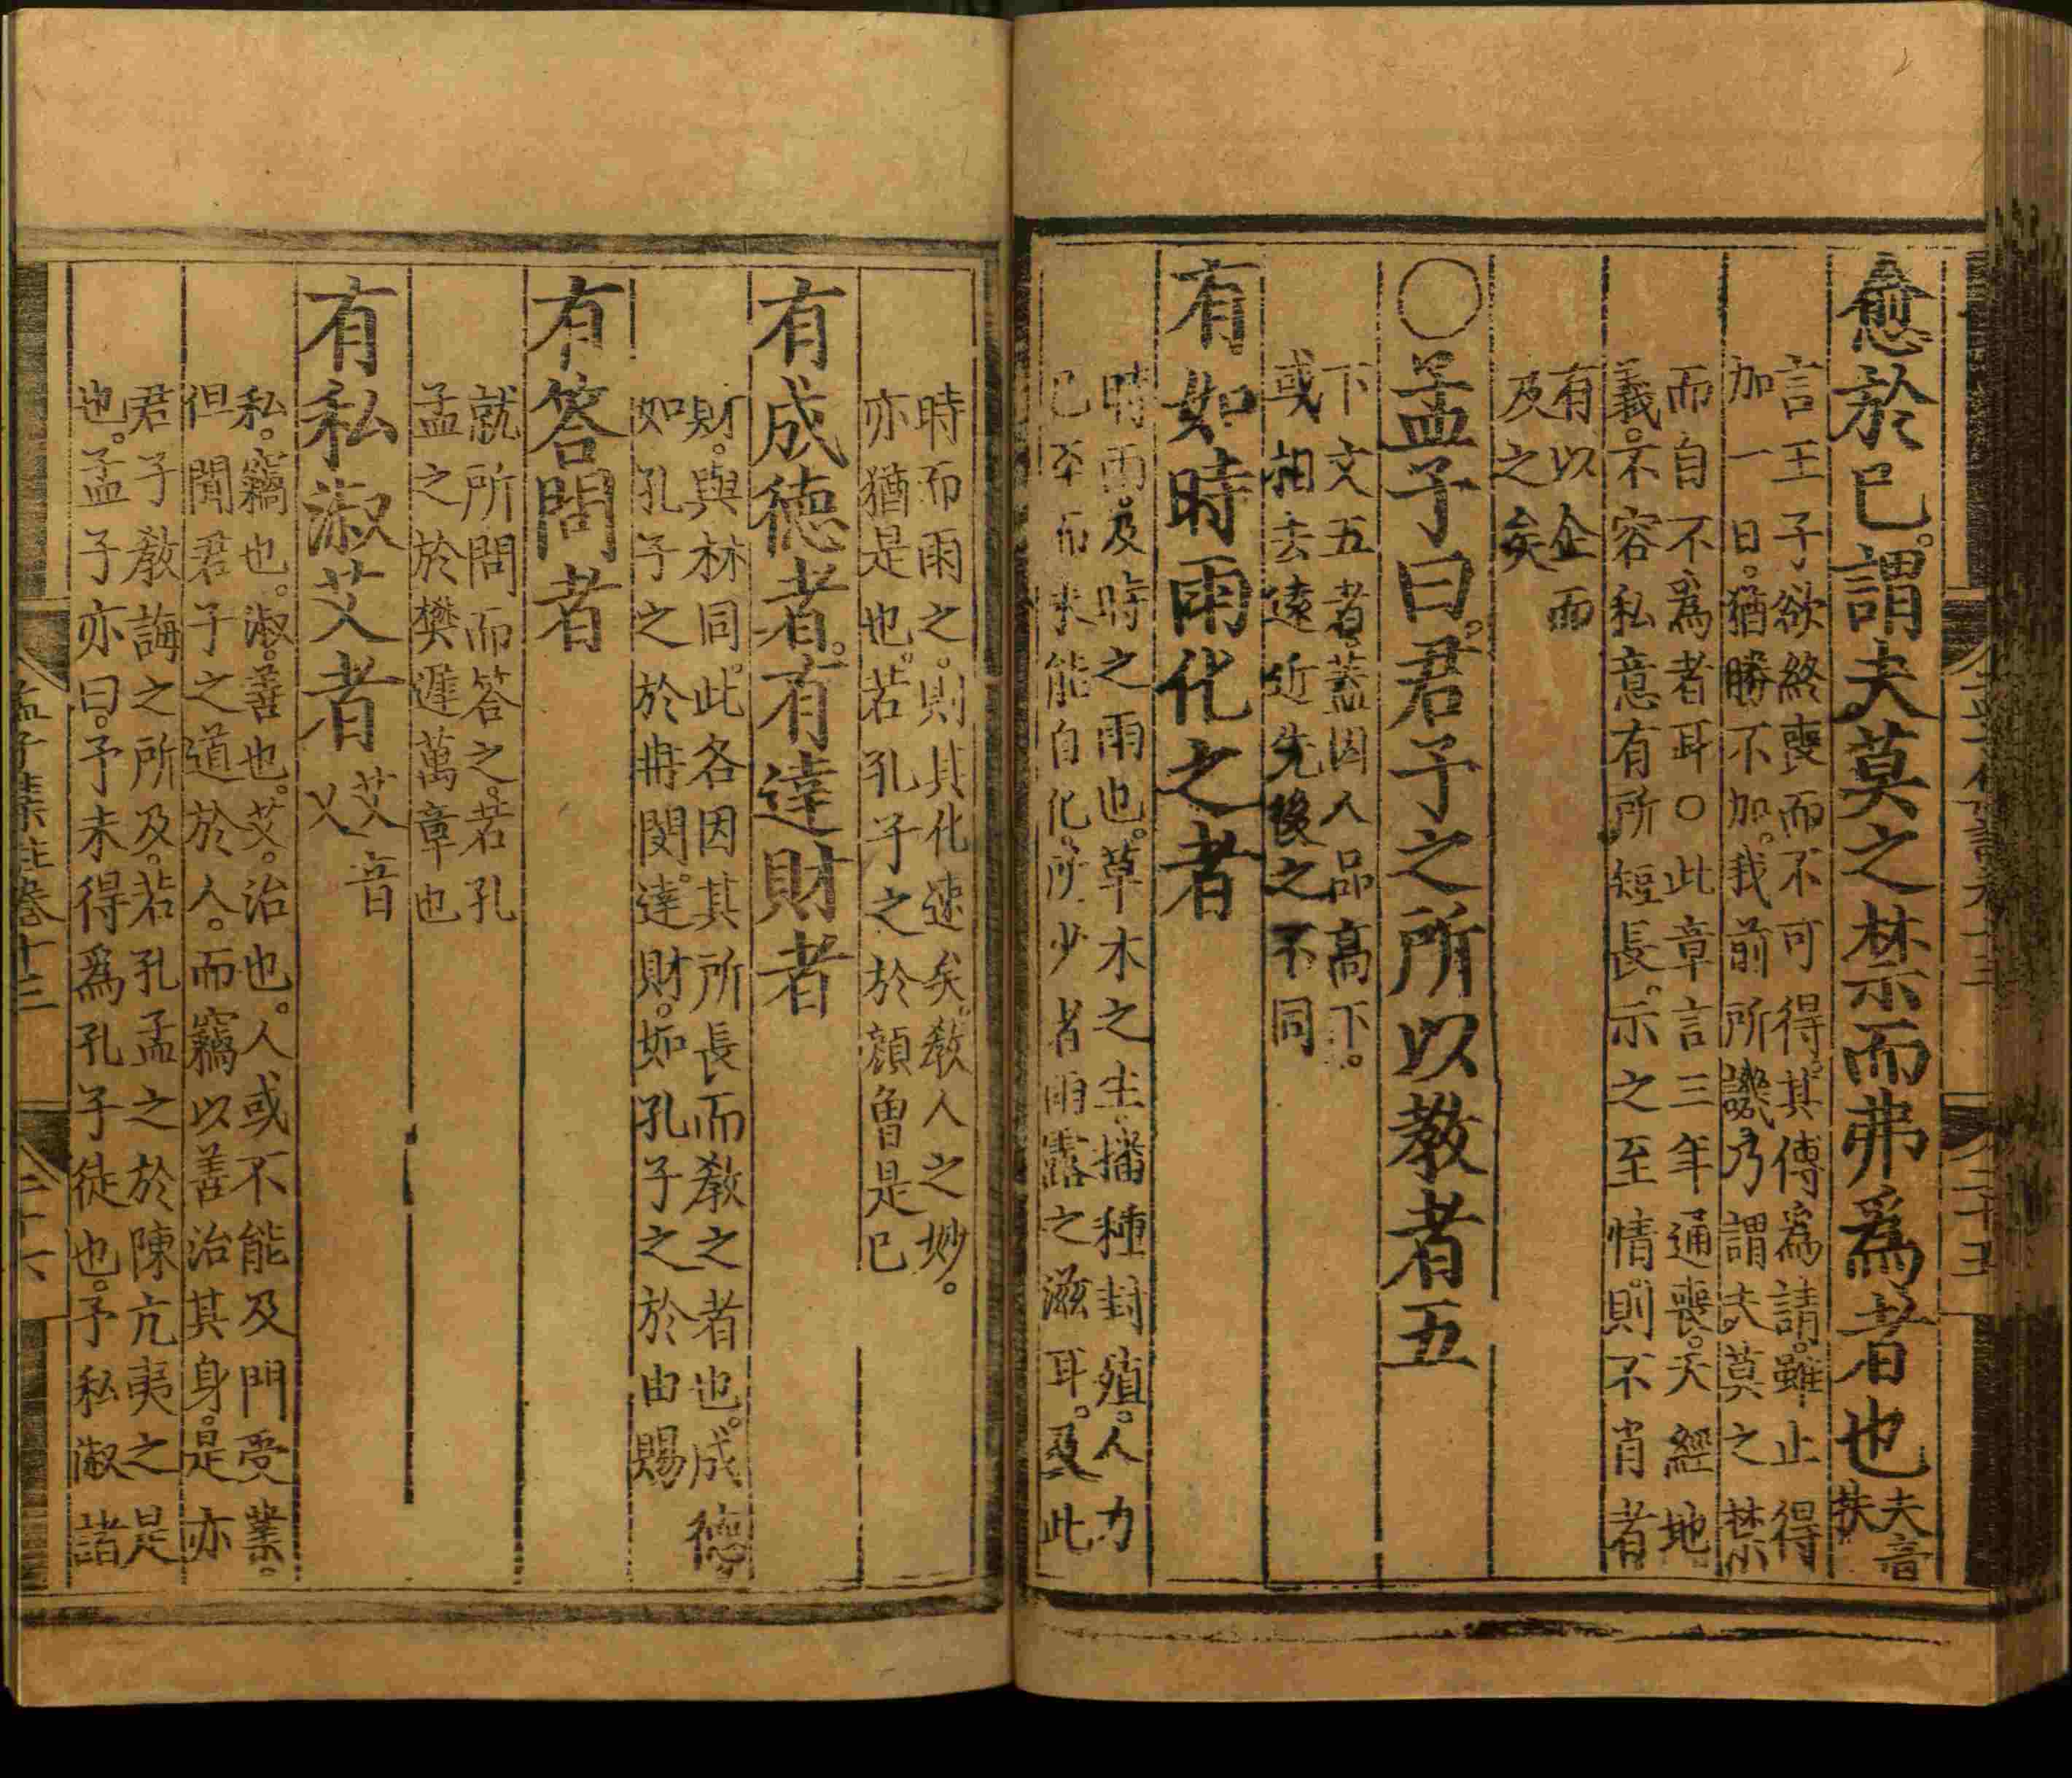 愈於已。謂夫莫之禁而弗爲者也夫音扶
言王子欲終喪而不可得。其傅爲請。雖止得
加一日。猶勝不加。我前所譏。乃謂夫莫之禁
而自不爲者耳○此章言三年通喪。天經地
義。不容私意有所短長。示之至情。則不肖者
有以企而
及之矣
○孟子曰。君子之所以教者五
下文五者。蓋因人品高下。
或相去遠近先後之不同
有如時雨化之者
時雨。及時之雨也。草木之生。播種封殖。人力
已至而未能自化。所少者雨露之滋耳。及此
時而雨之。則其化速矣。教人之妙。
亦猶是也。若孔子之於顔曽是已
有成德者。有達財者
財。與材同。此各因其所長而教之者也。成德
如孔子之於冉閔。達財。如孔子之於由賜
有答問者
就所問而答之。若孔
孟之於樊遲萬章也
有私淑艾者艾音乂
私。竊也。淑。善也。艾。治也。人或不能及門受業。
但聞君子之道於人。而竊以善治其身。是亦
君子教誨之所及。若孔孟之於陳亢夷之是
也。孟子亦曰。予未得爲孔子徒也。予私淑諸
孟子集註卷十三
二十六